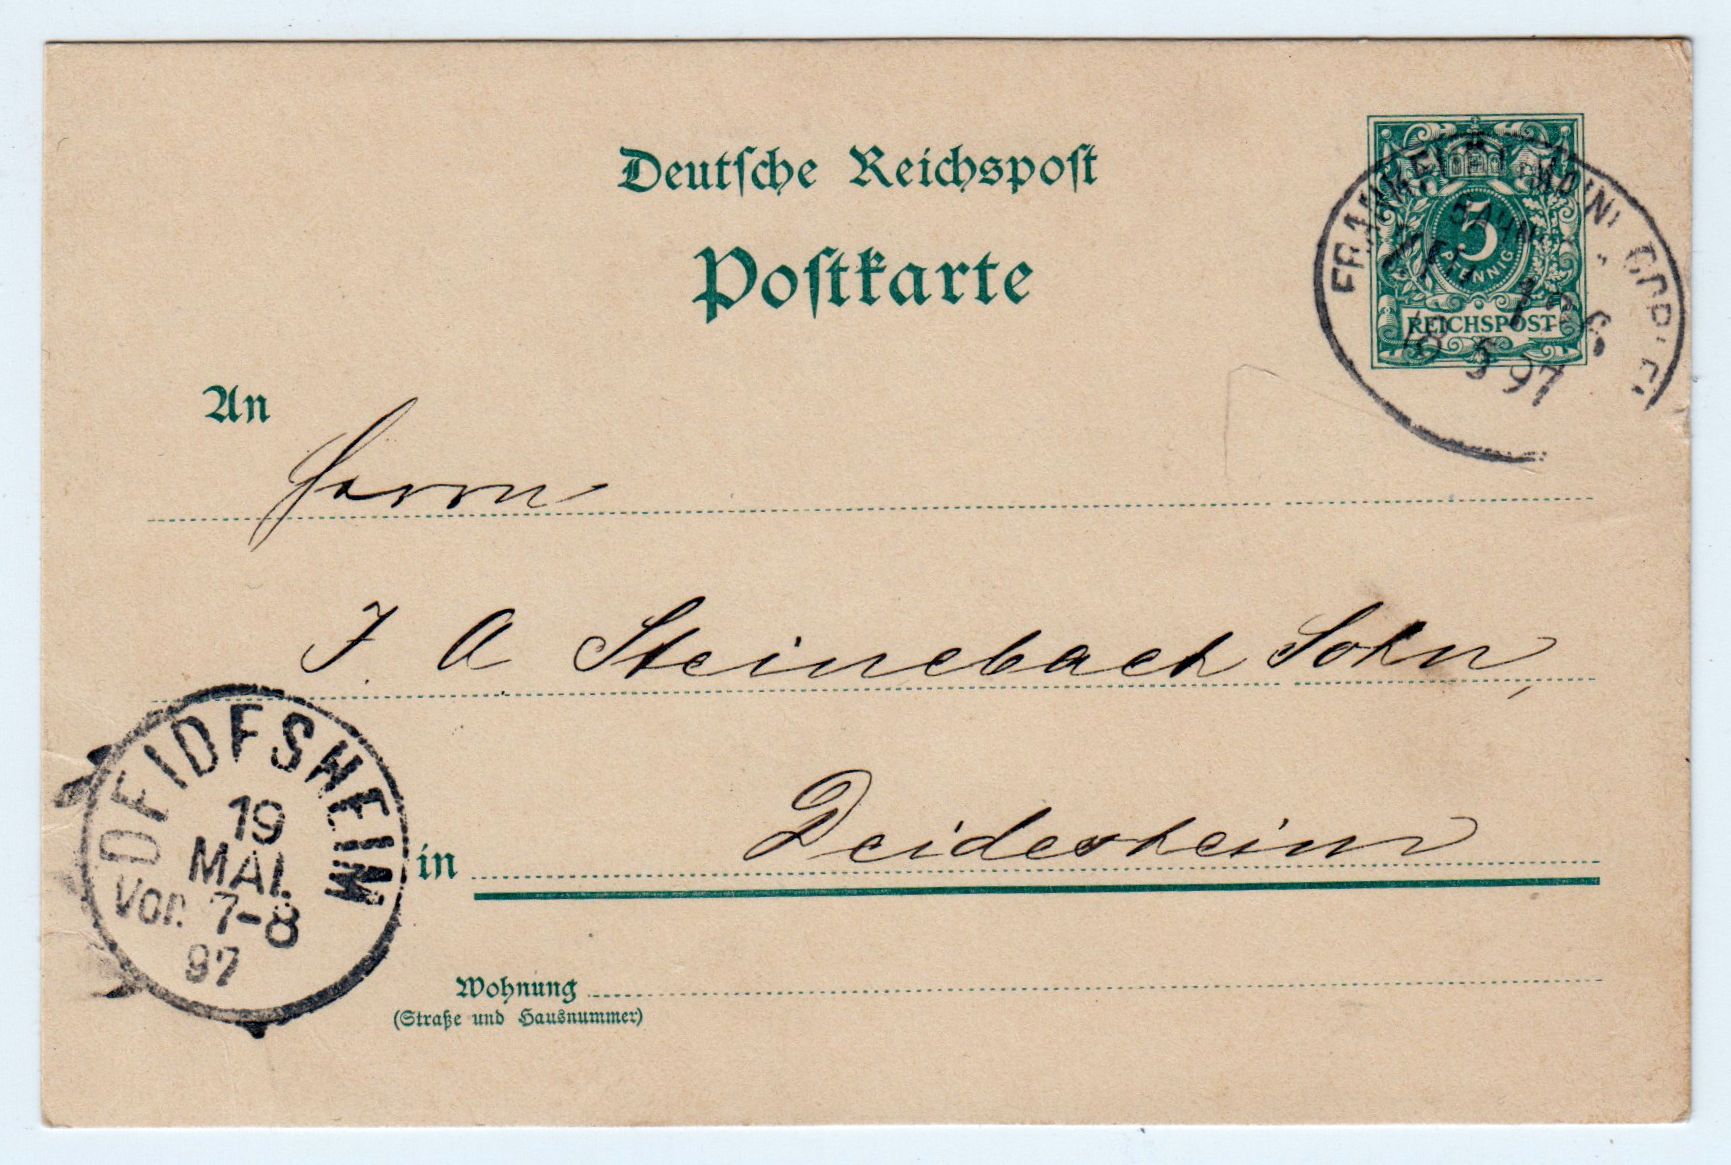 Deutsche Reichspost
Postkarte
5 PFENNIG
REICHSPOST
18 5 97
An
Herrn
J. A Steinebach Sohn,
in Deidesheim
DEIDESHEIM
19
MAI.
Vor. 7-8
97
Wohnung
(Straße und Hausnummer)